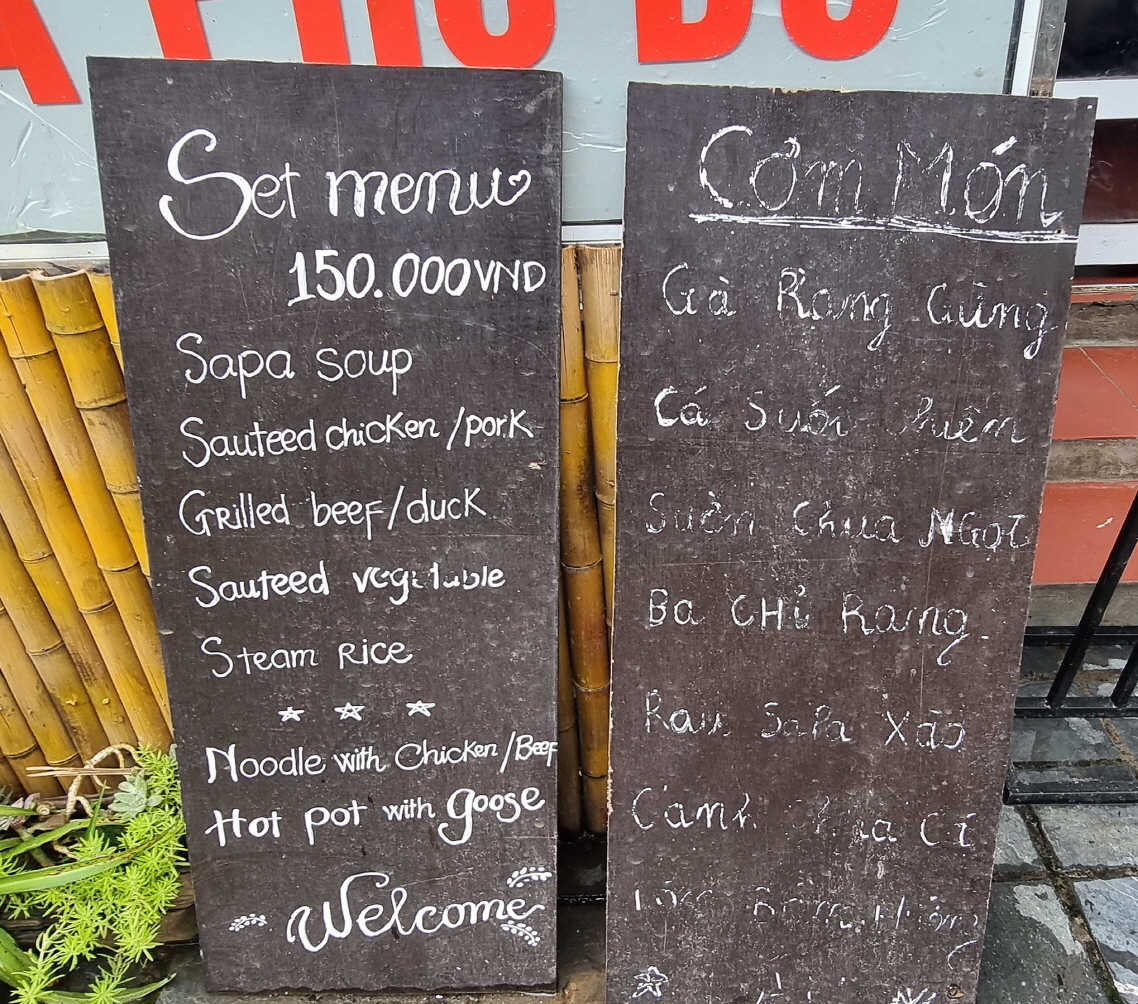 PHỞ BÒ
Set menu
150.000 VND
Sapa soup
Sauteed chicken / pork
Grilled beef / duck
Sauteed vegetable
Steam Rice
Noodle with Chicken / Beef
Hot pot with goose
Welcome
Cơm Món
Gà Rang Gừng
Cá Suối
Sườn Chua NGọt
Ba CHỉ Rang
Rau SaPa Xào
Canh